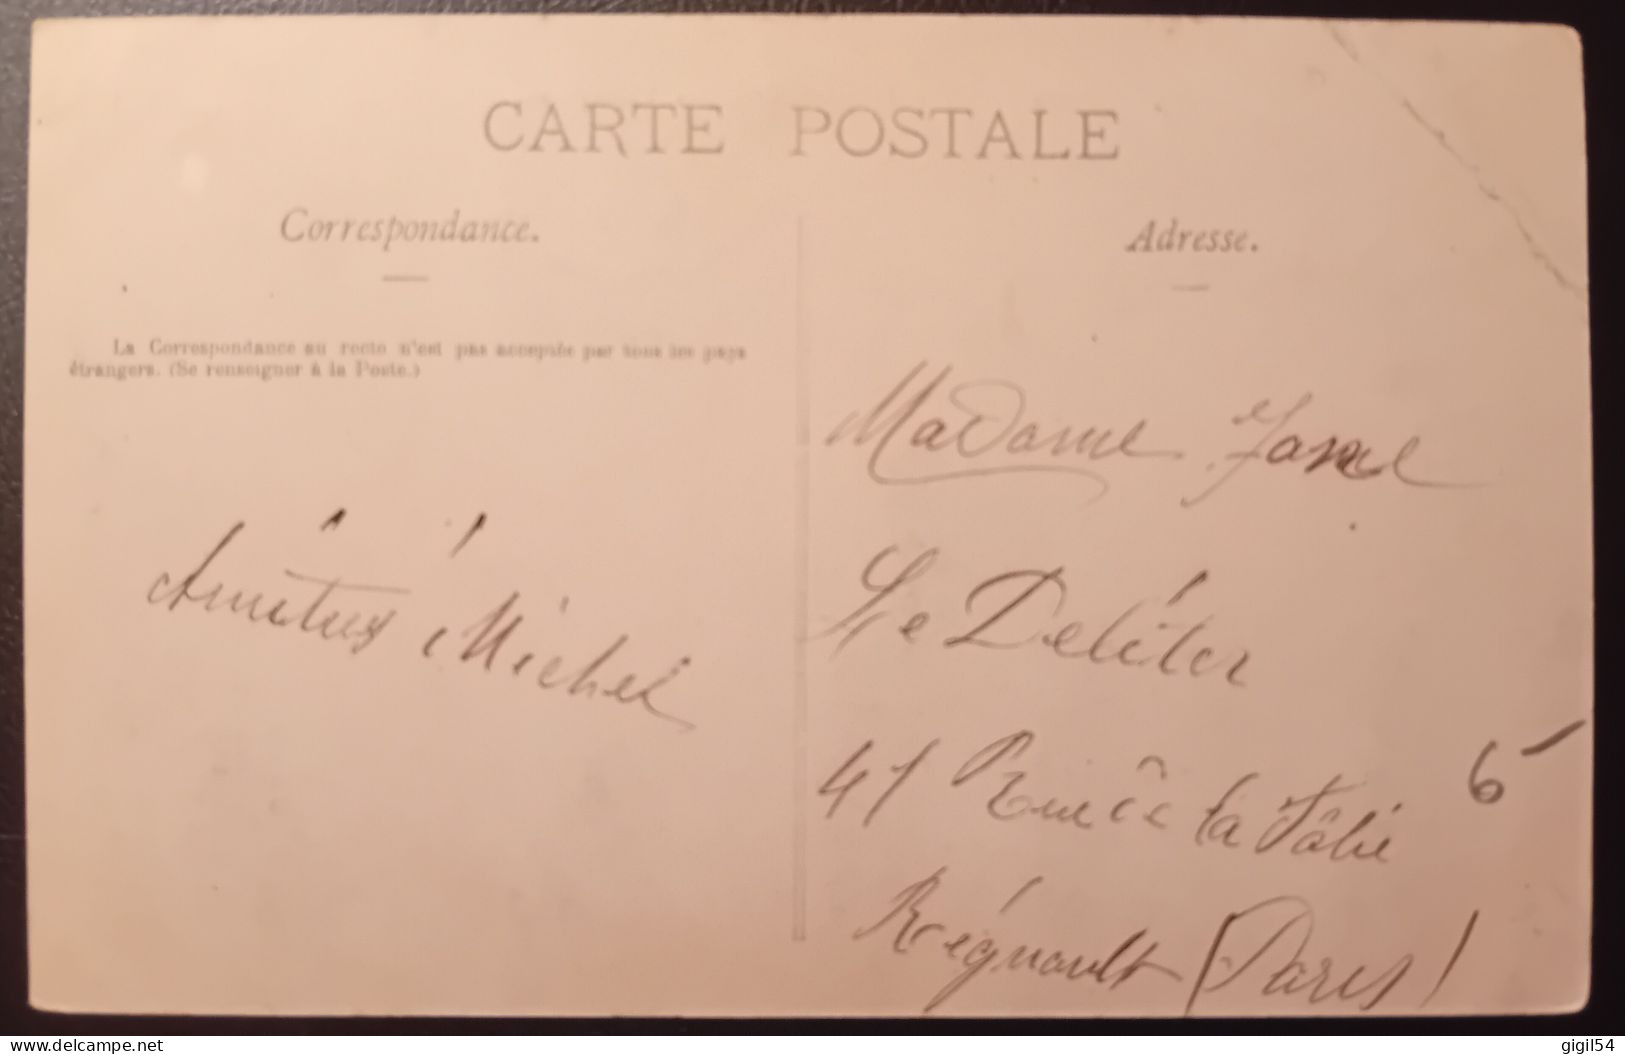 CARTE POSTALE
Correspondance.
La Correspondance au recto n'est pas acceptée par tous les pays
étrangers. (Se renseigner à la Poste.)
Michel
Adresse.
Madame
Le
41 Rue de la Fôlie 6
Régnault (Paris)
www.delcampe.net
gigil54